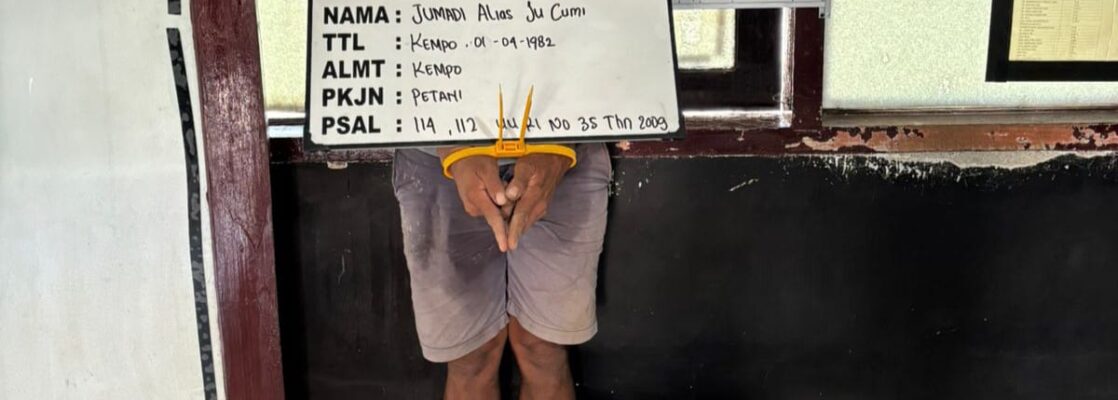 NAMA : JUMADI Alias Ju Cumi
TTL : KEMPO . 01 - 04 - 1982
ALMT : KEMPO
PKJN : PETANI
PSAL : 114 , 112 UU RI No 35 Thn 2009